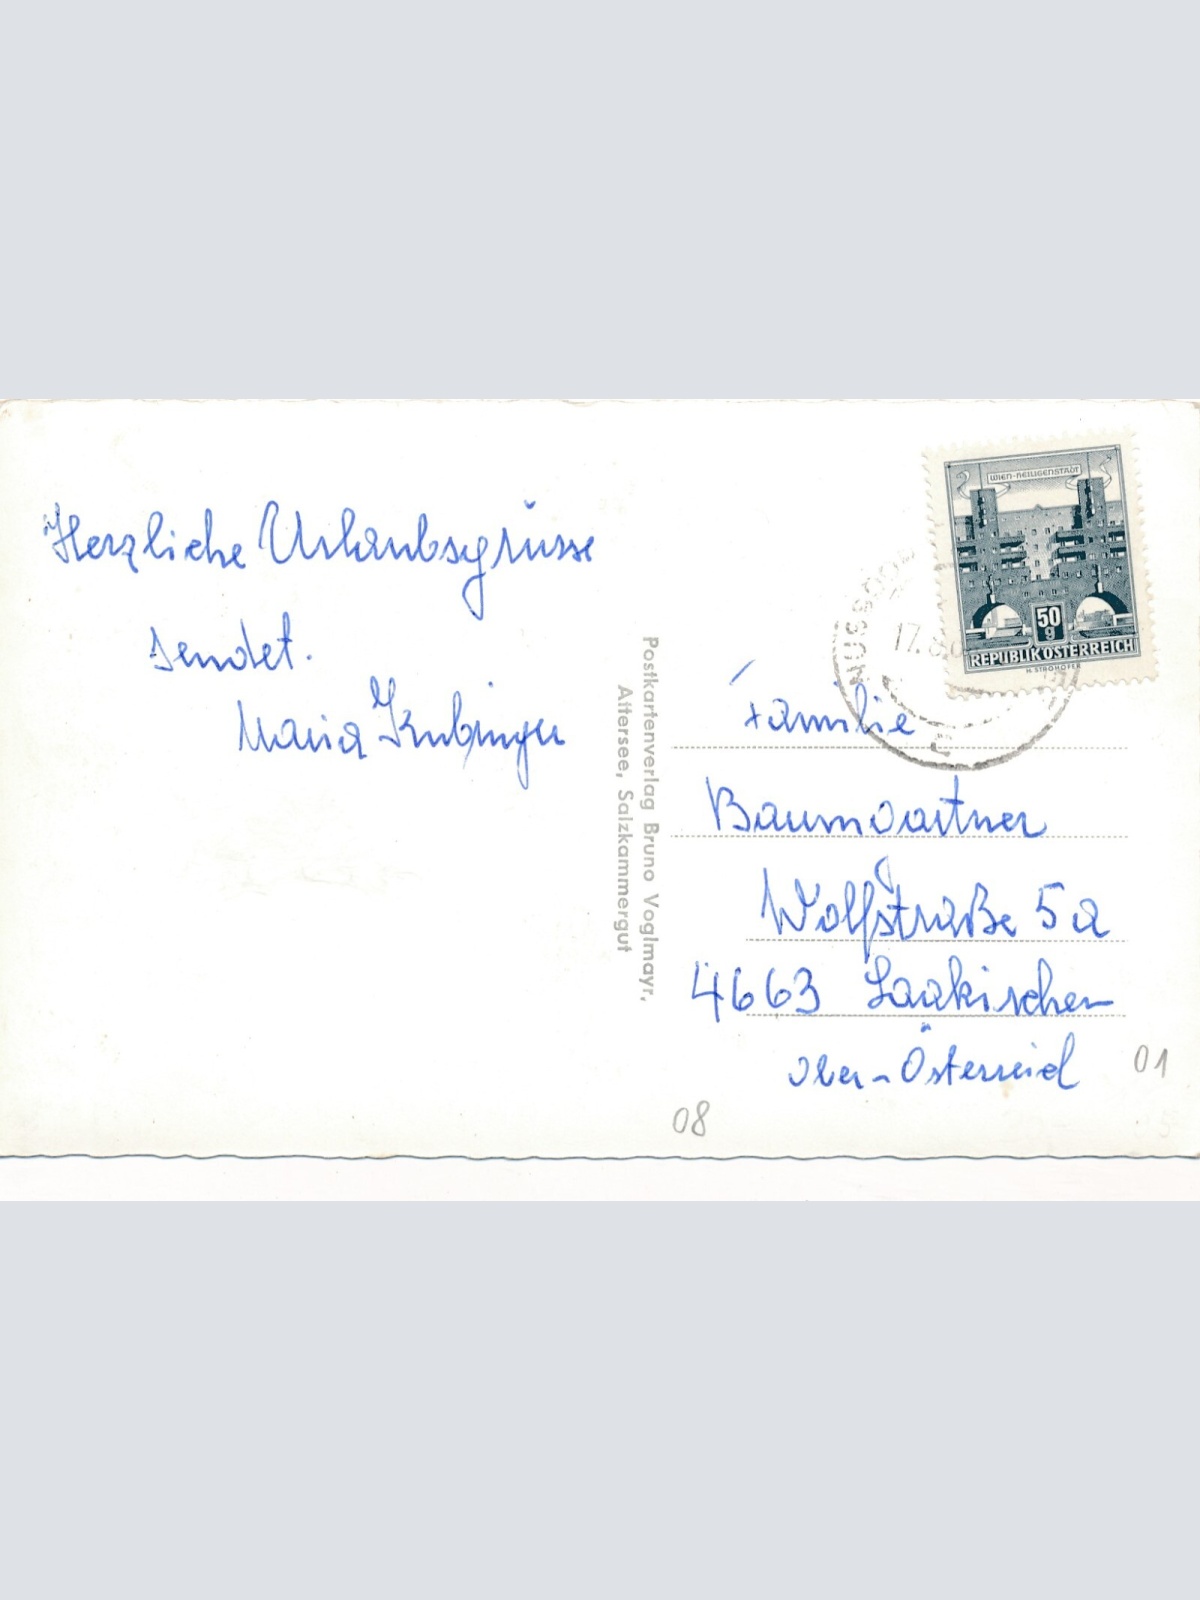 Herzliche Urlaubsgrüsse
sendet.
Maria
Postkartenverlag Bruno Voglmayr,
Attersee, Salzkammergut
WIEN-HEILIGENSTADT
50
g
REPUBLIK ÖSTERREICH
H. STROHOFER
NUSSDORF
17.
Familie
Baumgartner
Wolfstraße 5a
4663 Laakirchen
Ober-Österreich
01
08